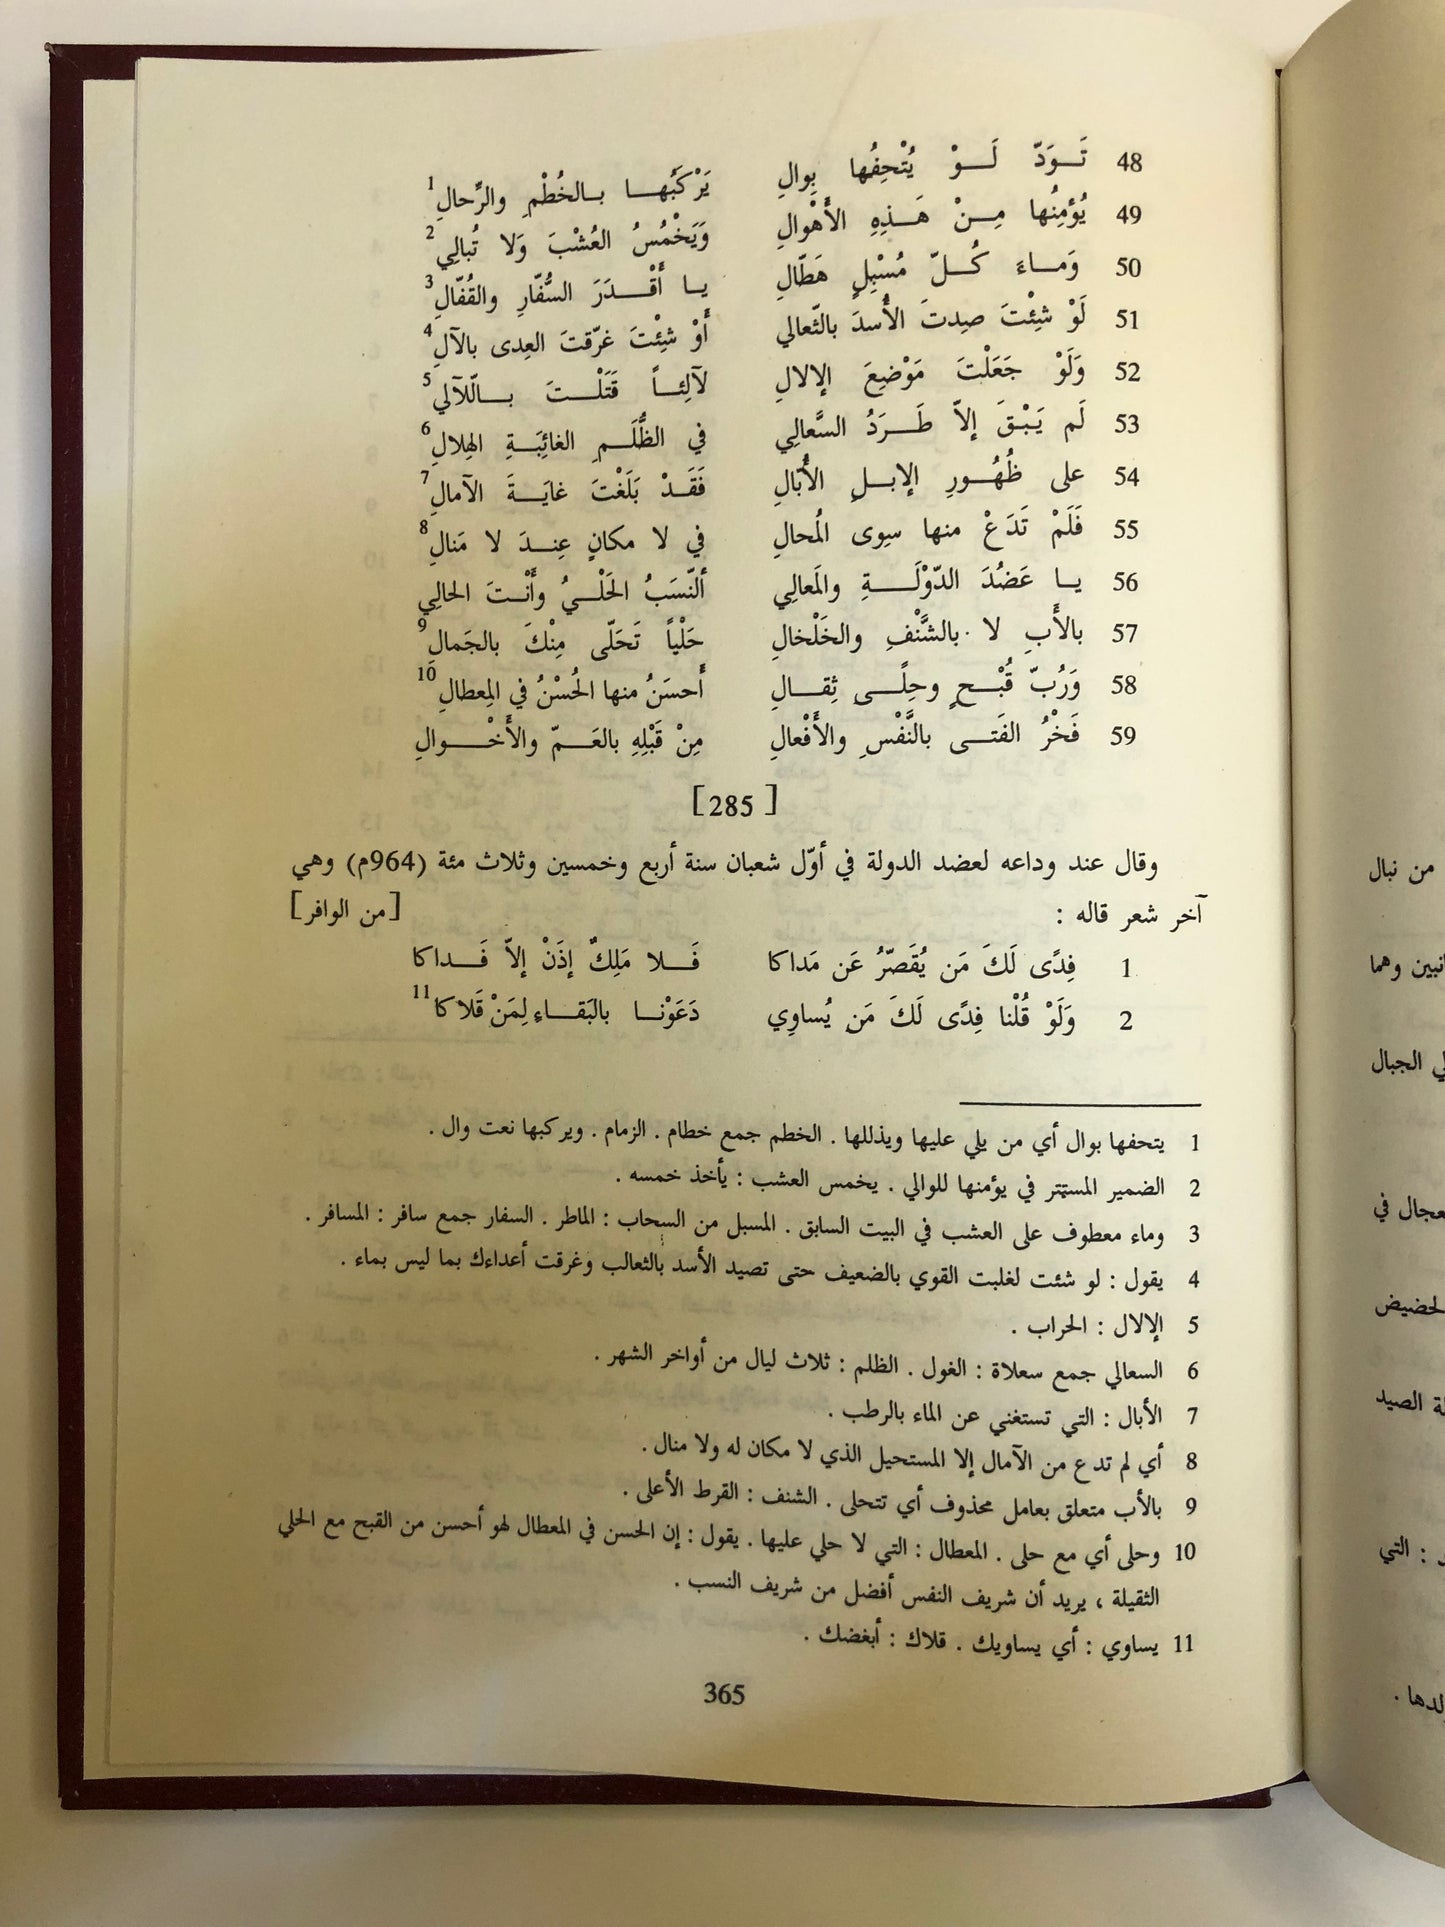 48 تَـــوَدّ لَـــوْ يُتْحِفُها بِوالِ يَرْكَبُهـــا بـــالخُطْمِ والرِّحالِ1
49 يُؤمِنُها مِـــنْ هَـــذِهِ الأَهْوالِ وَيَخْمُسُ العُشْبَ وَلا تُبالِي2
50 وَمـــاءَ كُـــلّ مُسْبِلٍ هَطّالِ يـــا أَقْـــدَرَ السُّفّارِ والقُفّالِ3
51 لَوْ شِئْتَ صِدتَ الأُسدَ بالثّعالي أَوْ شِئْتَ غرّقتَ العِدى بالآلِ4
52 وَلَوْ جَعَلْتَ مَوْضِعَ الإلالِ لآلِئـــاً قَتَلْـــتَ بـــالّلآلي5
53 لَم يَبْـــقَ إلاّ طَـــرَدُ السَّعالِي في الظُّلَـــمِ الغائِبَـــةِ الهِلالِ6
54 على ظُهُـــورِ الإبـــلِ الأُبّالِ فَقَـــدْ بَلَغْتَ غايَـــةَ الآمالِ7
55 فَلَمْ تَدَعْ منها سِوى المُحالِ في لا مكانٍ عِنـــدَ لا مَنالِ8
56 يـــا عَضُدَ الدّوْلَـــةِ والمَعالِي ألنّسَبُ الحَلْـــيُ وأَنْـــتَ الحالِي
57 بالأَبِ لا بالشَّنْفِ والخَلْخالِ حَلْياً تَحَلّى مِنْكَ بالجَمالِ9
58 وَرُبّ قُبْـــحٍ وحِلًـــى ثِقـــالِ أَحسَنُ منها الحُسْنُ في المِعطالِ10
59 فَخْرُ الفَتـــى بالنَّفْسِ والأَفْعالِ مِنْ قَبْلِهِ بالعَـــمّ والأَخْـــوالِ
[285]
وقال عند وداعه لعضد الدولة في أوّل شعبان سنة أربع وخمسين وثلاث مئة (964م) وهي
آخر شعر قاله : [من الوافر]
1 فِدًى لَكَ مَن يُقَصّرُ عَن مَداكا فَـــلا مَلِكٌ إذَنْ إلاّ فَـــداكا
2 وَلَوْ قُلْنا فِدًى لَكَ مَن يُساوِي دَعَوْنـــا بالبَقـــاءِ لِمَنْ قَلاكا11
1 يتحفها بوال أي من يلي عليها ويذللها . الخطم جمع خطام . الزمام . ويركبها نعت وال .
2 الضمير المستتر في يؤمنها للوالي . يخمس العشب : يأخذ خمسه .
3 وماء معطوف على العشب في البيت السابق . المسبل من السحاب : الماطر . السفار جمع سافر : المسافر .
4 يقول : لو شئت لغلبت القوي بالضعيف حتى تصيد الأسد بالثعالب وغرقت أعداءك بما ليس بماء .
5 الإلال : الحراب .
6 السعالي جمع سعلاة : الغول . الظلم : ثلاث ليال من أواخر الشهر .
7 الأبال : التي تستغني عن الماء بالرطب .
8 أي لم تدع من الآمال إلا المستحيل الذي لا مكان له ولا منال .
9 بالأب متعلق بعامل محذوف أي تتحلى . الشنف : القرط الأعلى .
10 وحلى أي مع حلى . المعطال : التي لا حلي عليها . يقول : إن الحسن في المعطال لهو أحسن من القبح مع الحلي
الثقيلة ، يريد أن شريف النفس أفضل من شريف النسب .
11 يساوي : أي يساويك . قلاك : أبغضك .
365
من نبال
وهما
الجبال
في
الصيد
: التي